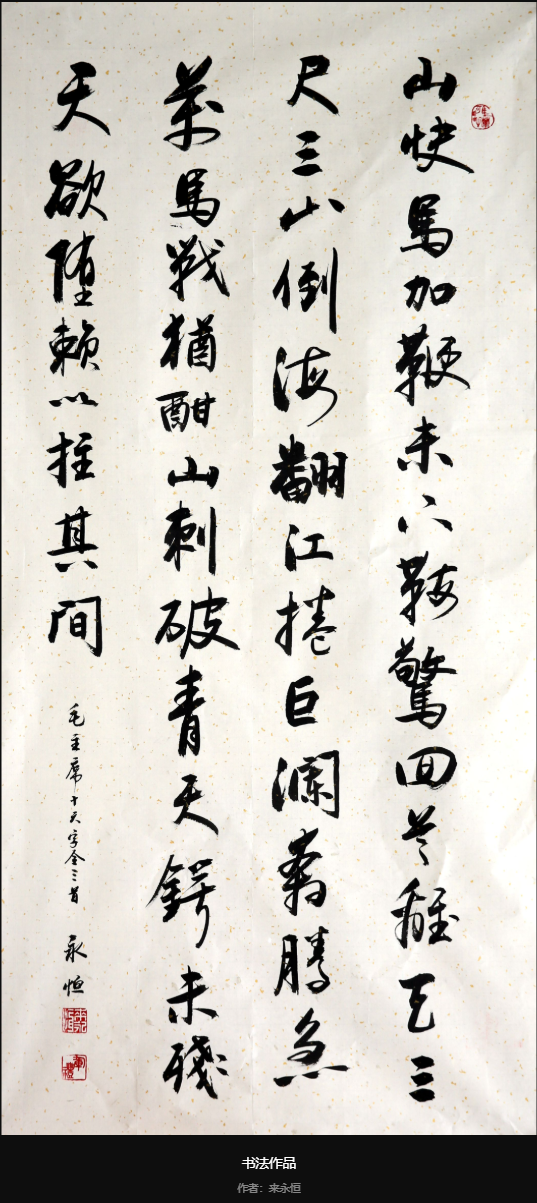 山快馬加鞭未下鞍驚回首離天三
尺三山倒海翻江捲巨瀾奔騰急
萬馬戰猶酣山刺破青天鍔未殘
天欲堕賴以拄其間
毛主席十六字令三首 永恒
书法作品
作者：来永恒